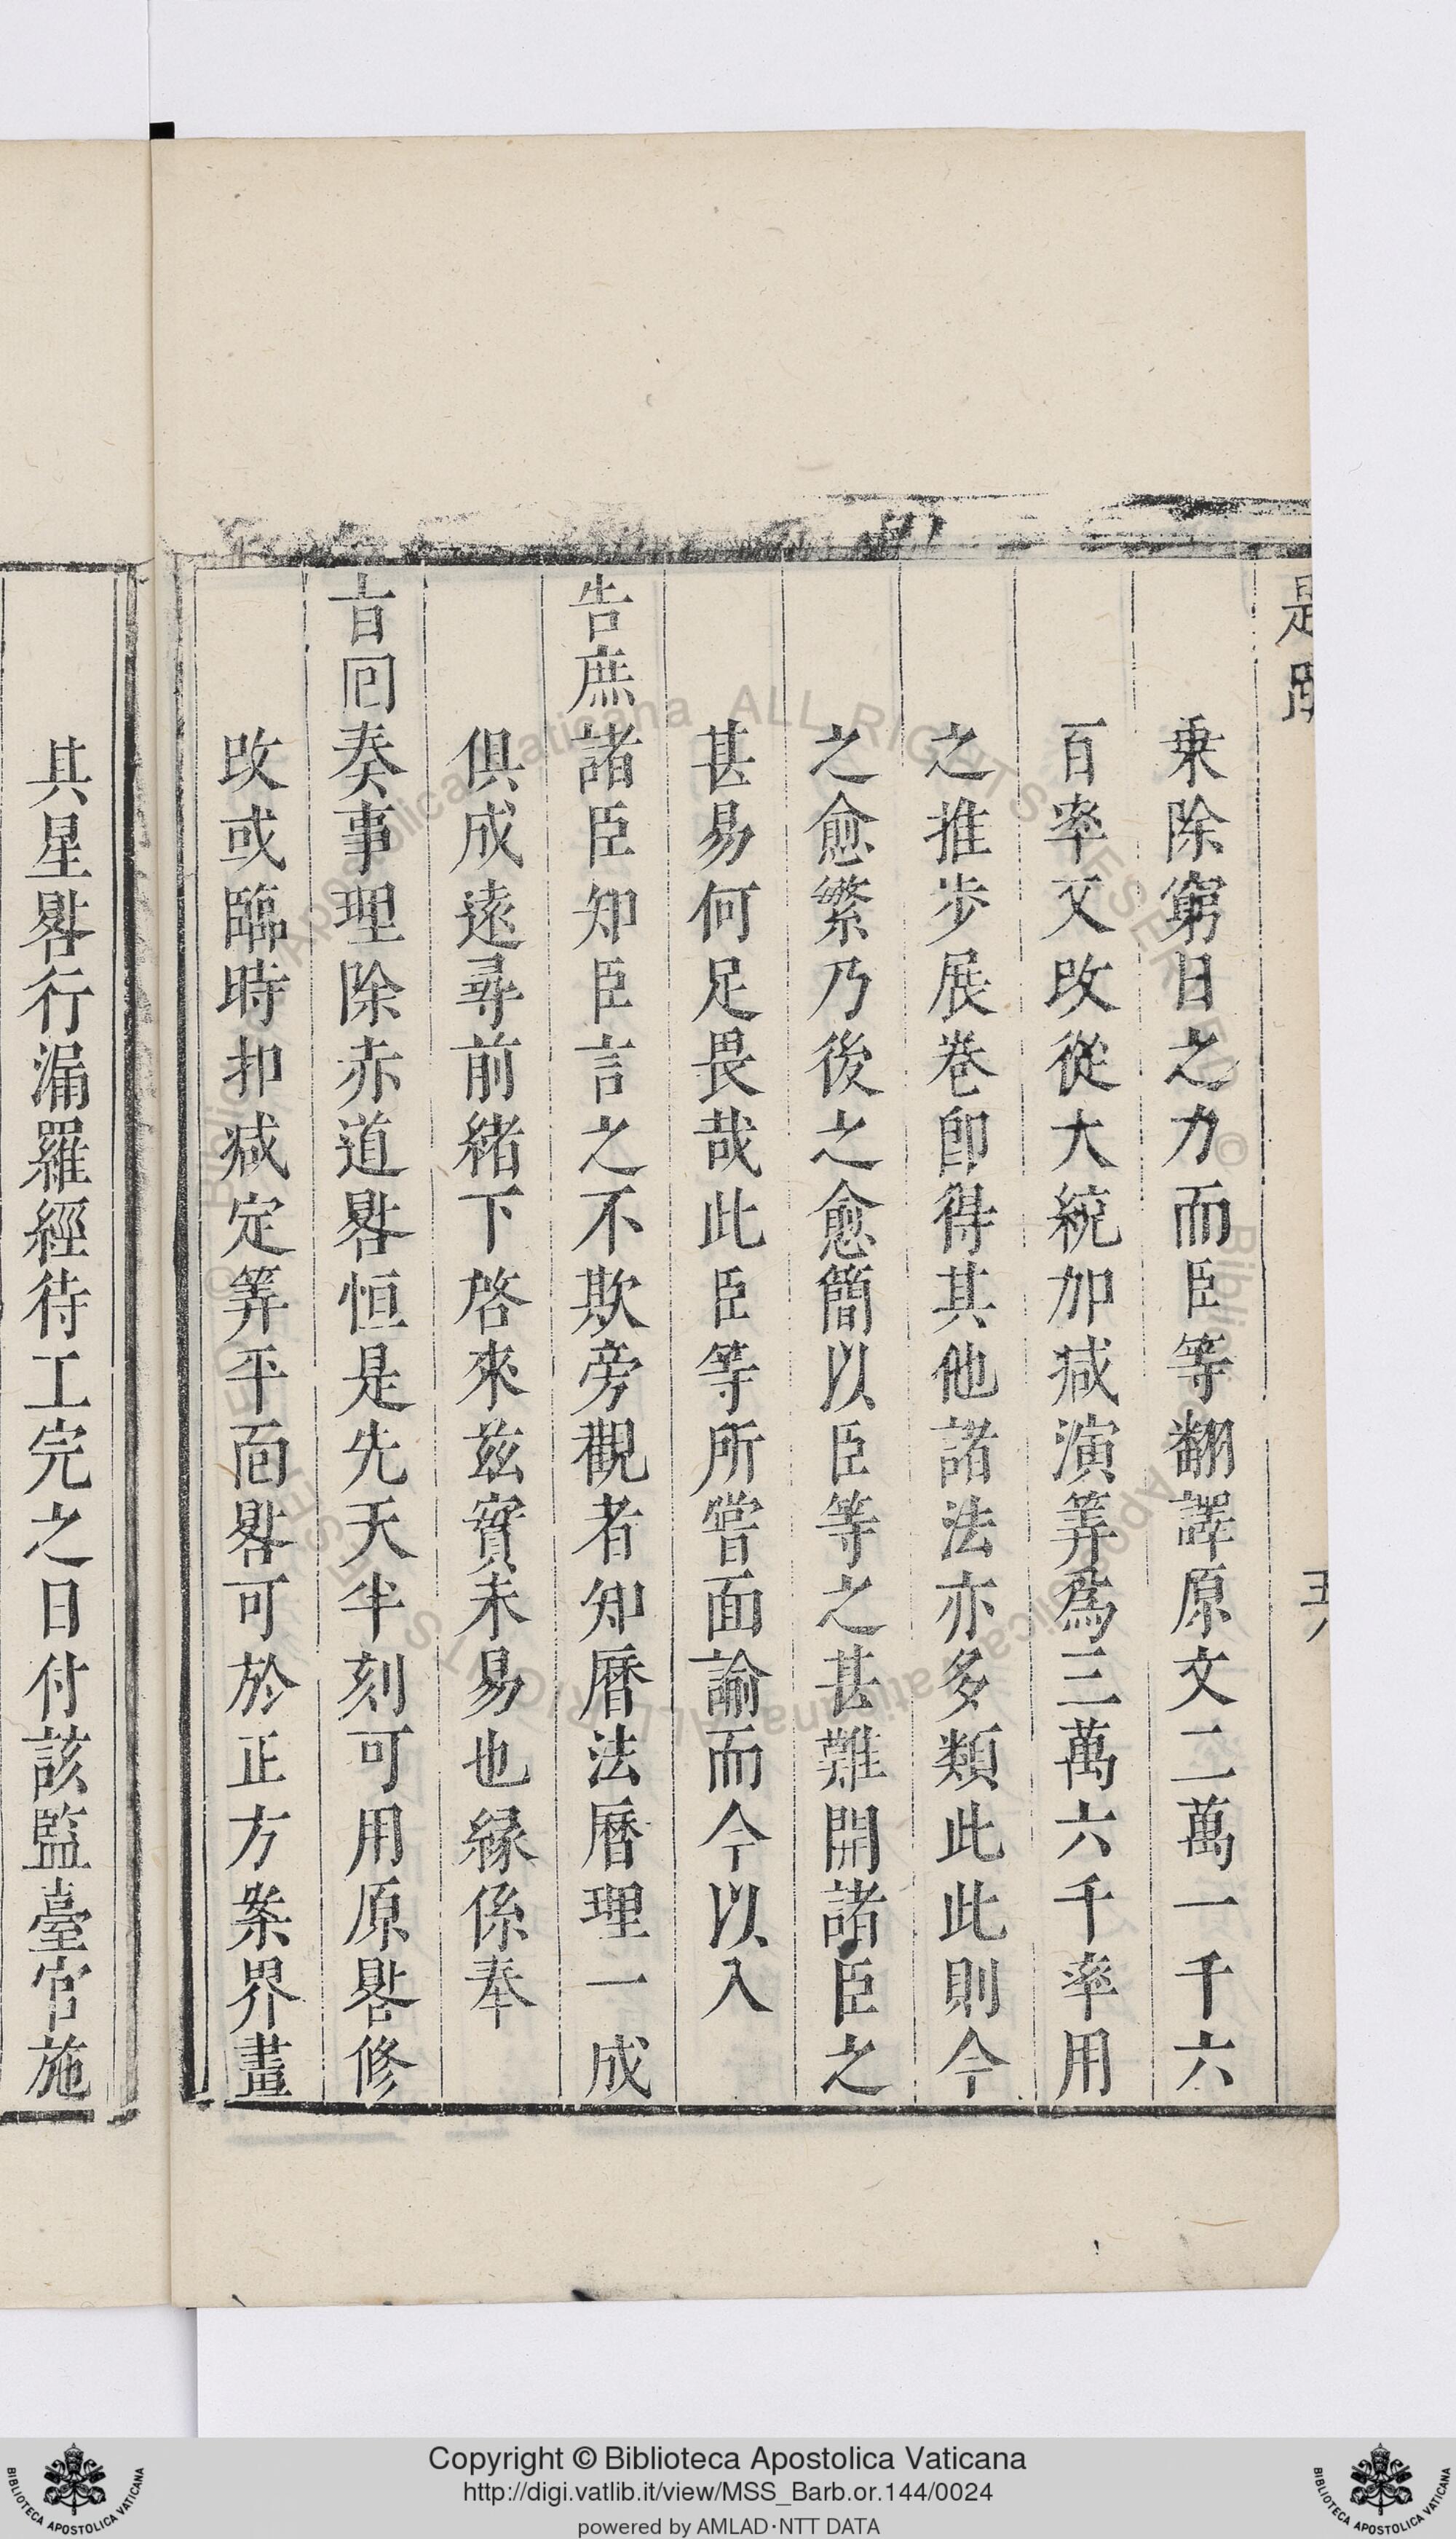 乗除窮日之力而臣等翻譯原文二萬一千六
百率又改從大統加减演筭爲三萬六千率用
之推步展卷卽得其他諸法亦多類此此則今
之愈繁乃後之愈簡以臣等之甚難開諸臣之
甚易何足畏哉此臣等所嘗面諭而今以入
告庶諸臣知臣言之不欺旁觀者知曆法曆理一成
俱成遠尋前緒下啓來兹實未易也緣係奉
旨回奏事理除赤道晷恒是先天半刻可用原晷修
改或臨時扣减定筭平面晷可於正方案界畫
其星晷行漏羅經待工完之日付該監臺官施
Copyright © Biblioteca Apostolica Vaticana
http://digi.vatlib.it/view/MSS_Barb.or.144/0024
powered by AMLAD·NTT DATA
BIBLIOTECA APOSTOLICA VATICANA
BIBLIOTECA APOSTOLICA VATICANA